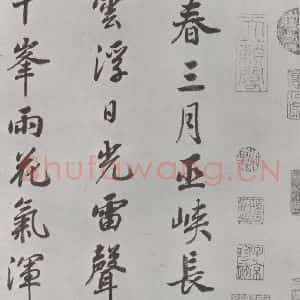 春三月巫峡長
雲浮日光雷聲
千峯雨花氣渾
Shufawang.CN